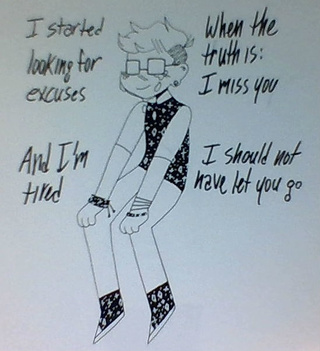 I started
looking for
excuses
And I'm
tired
When the
truth is:
I miss you
I should not
have let you go